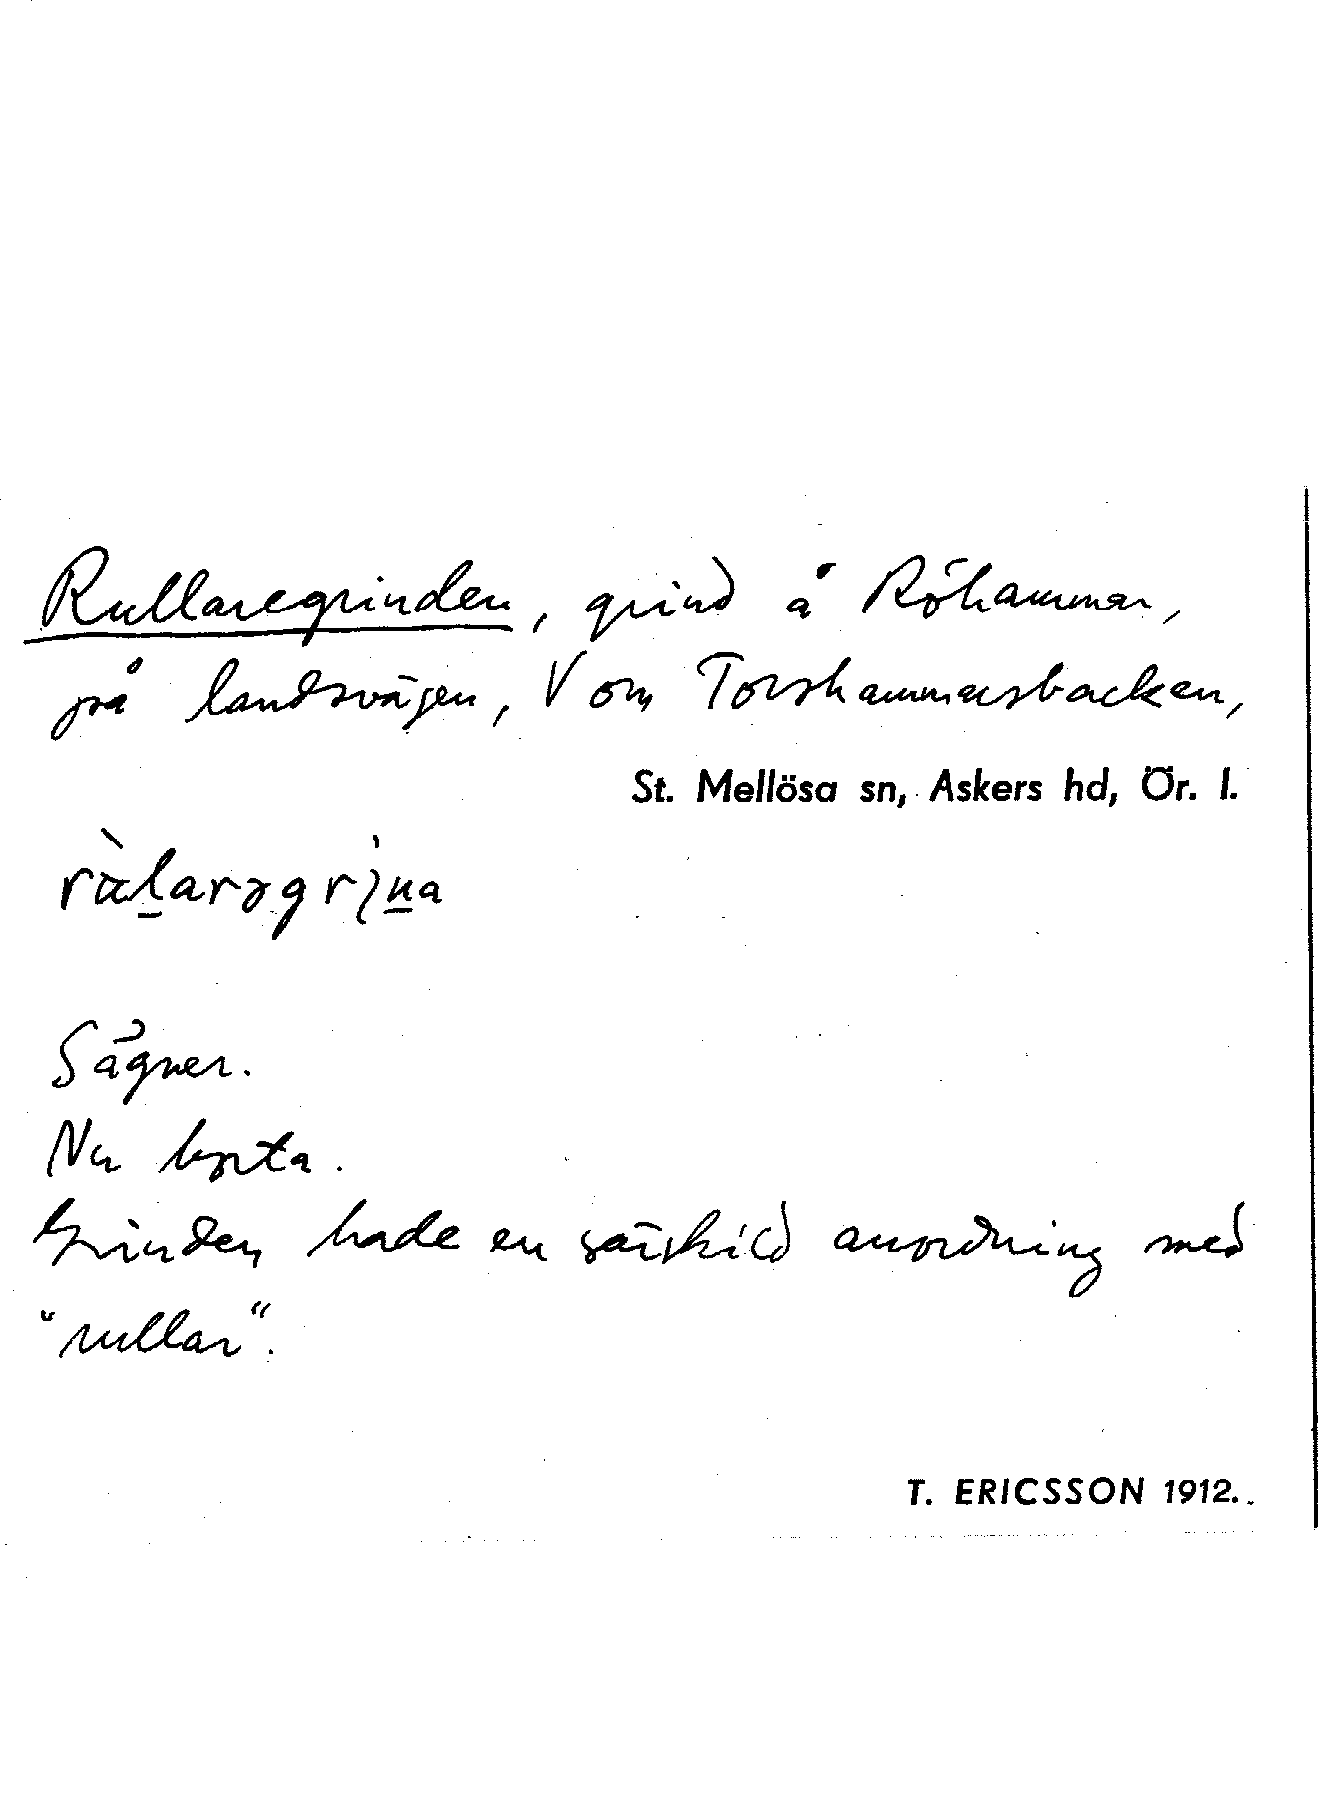 Rullaregrinden, grind å Röhammar,
på landsvägen, V om Torshammarsbacken,
St. Mellösa sn, Askers hd, Ör. l.
Sägner.
Nu borta.
Grinden hade en särskild anordning med
"rullar".
T. ERICSSON 1912.